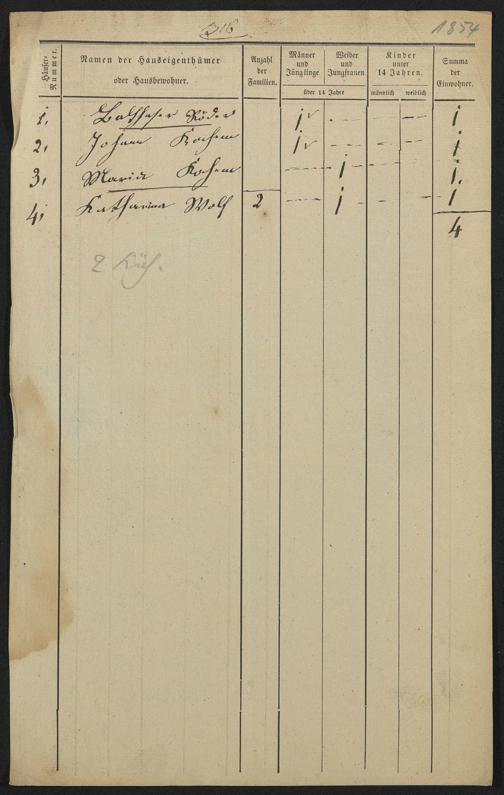 316
1854
Häuser-Nummer.
Namen der Hauseigenthümer
oder Hausbewohner.
Anzahl
der
Familien.
Männer
und
Jünglinge
Weiber
und
Jungfrauen
über 14 Jahre
Kinder
unter
14 Jahren.
männlich
weiblich
Summa
der
Einwohner.
1. Balthaser Röder 1 - - - 1
2. Johann Kochem 1 - - - 1
3. Maria Kochem - 1 - - 1.
4. Katharina Wolf 2 - 1 - - 1
4
2 Küh.